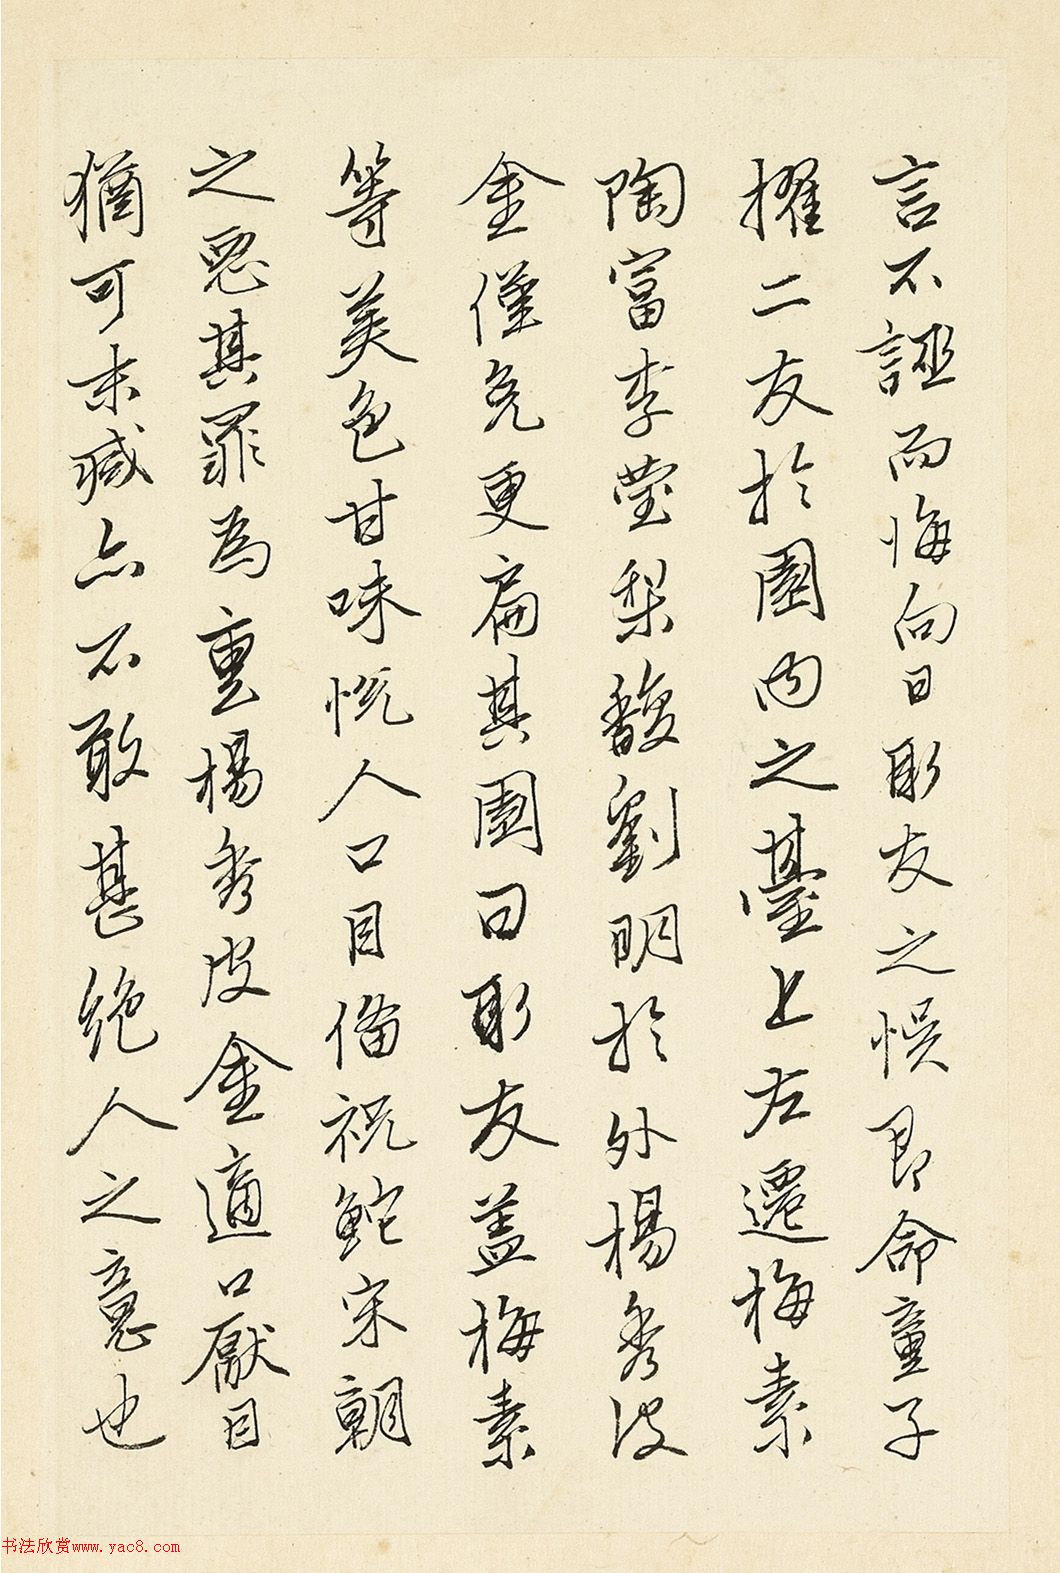 言不誣而悔向日取友之悞即命童子
擢二友於園內之臺上左遷梅素
陶富李瑩梨馥劉明於外楊秀皮
金僅免更扁其園曰取友蓋梅素
等美色甘味悦人口目偹祝鮀宋朝
之惡其罪為重楊秀皮金適口厭目
猶可末減亦不敢甚絶人之意也
书法欣赏www.yac8.com